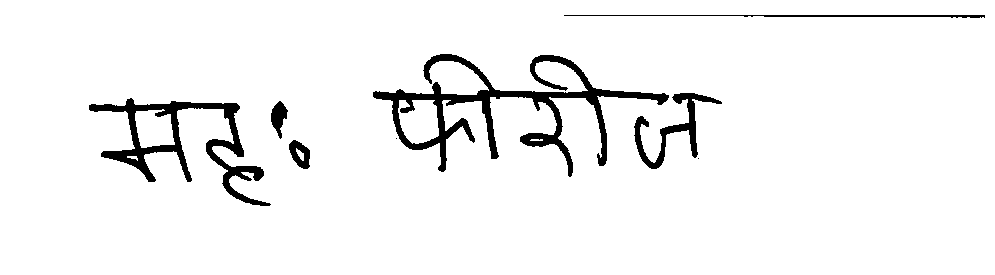 महः फीरोज